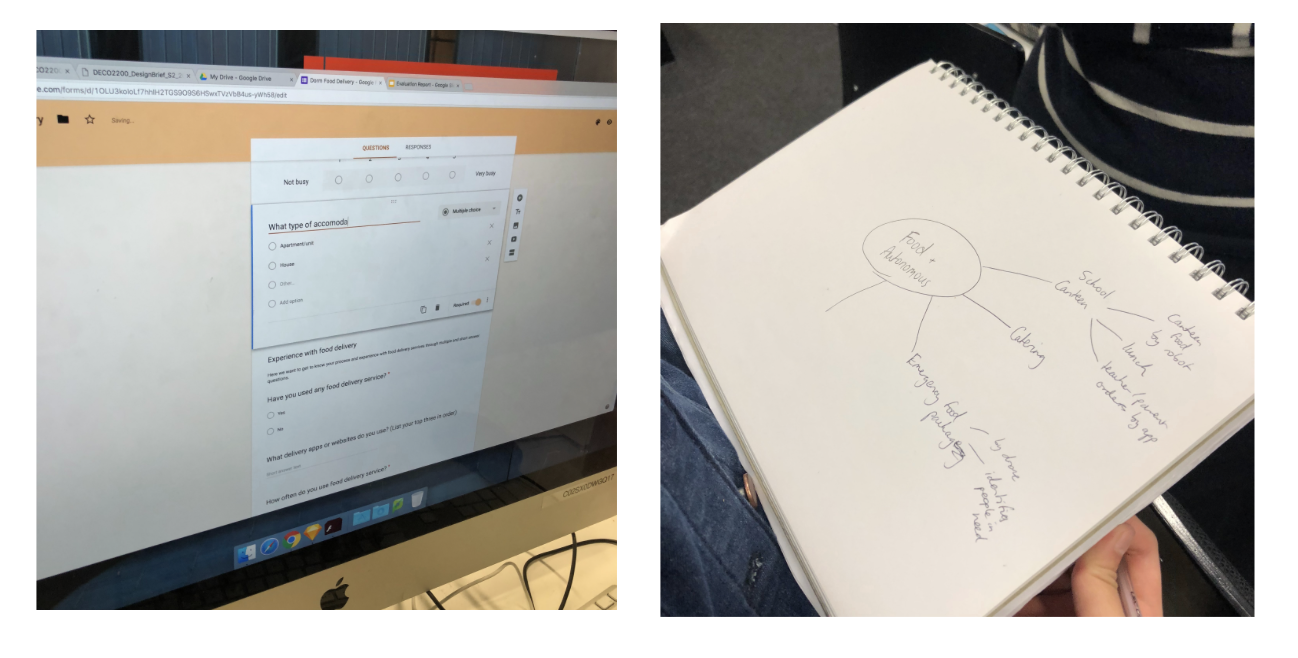 DECO2200_DesignBrief_S2_
My Drive - Google Drive
Dorm Food Delivery - Google
Evaluation Report - Google
Saving...
QUESTIONS
RESPONSES
Not busy
Very busy
What type of accomoda
Multiple choice
Apartment/unit
House
Other...
Add option
Required
Experience with food delivery
Here we want to get to know your process and experience with food delivery services through multiple and short answer
questions.
Have you used any food delivery service? *
Yes
No
What delivery apps or websites do you use? (List your top three in order)
Short answer text
How often do you use food delivery service? *
Food +
Autonomous
School
Canteen
Canteen
food
by robot
lunch
teacher/parent
orders by app
Catering
Emergency food
packages
by drone
identifies
people in
need